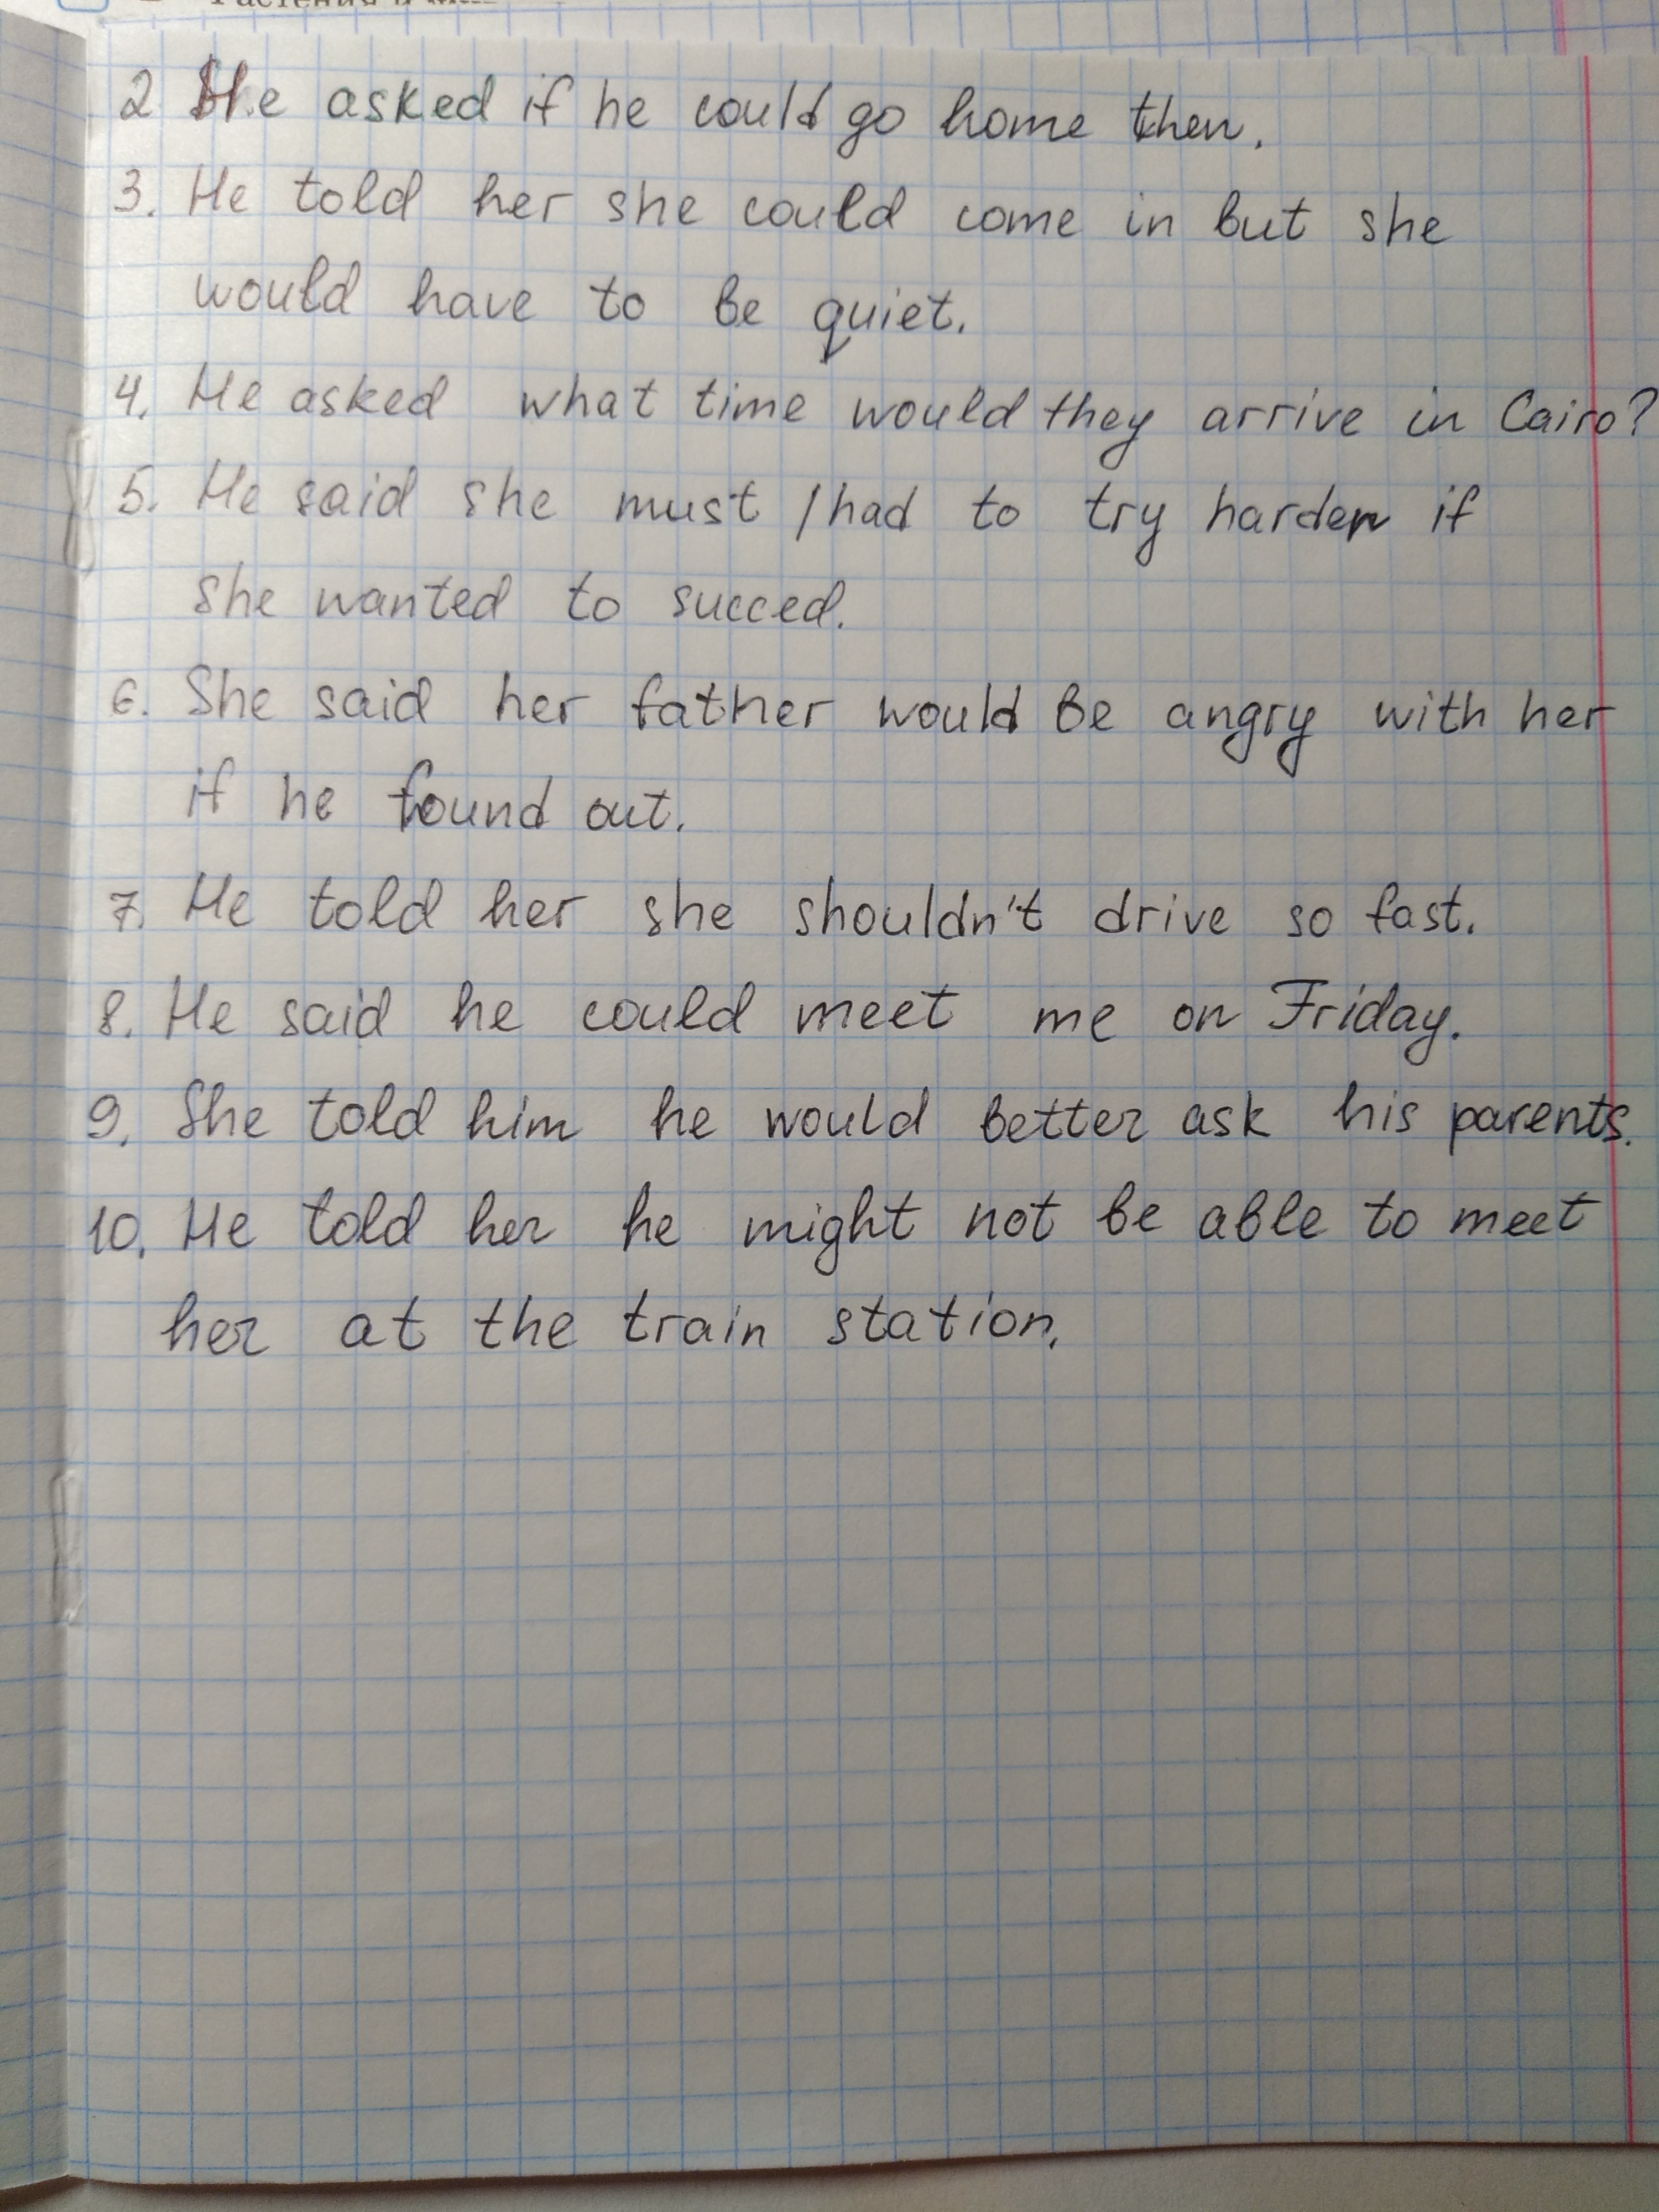 2 He asked if he could go home then.
3. He told her she could come in but she
would have to be quiet.
4. He asked what time would they arrive in Cairo?
5. He said she must / had to try harder if
she wanted to succed.
6. She said her father would be angry with her
if he found out.
7. He told her she shouldn't drive so fast.
8. He said he could meet me on Friday.
9. She told him he would better ask his parents.
10. He told her he might not be able to meet
her at the train station.